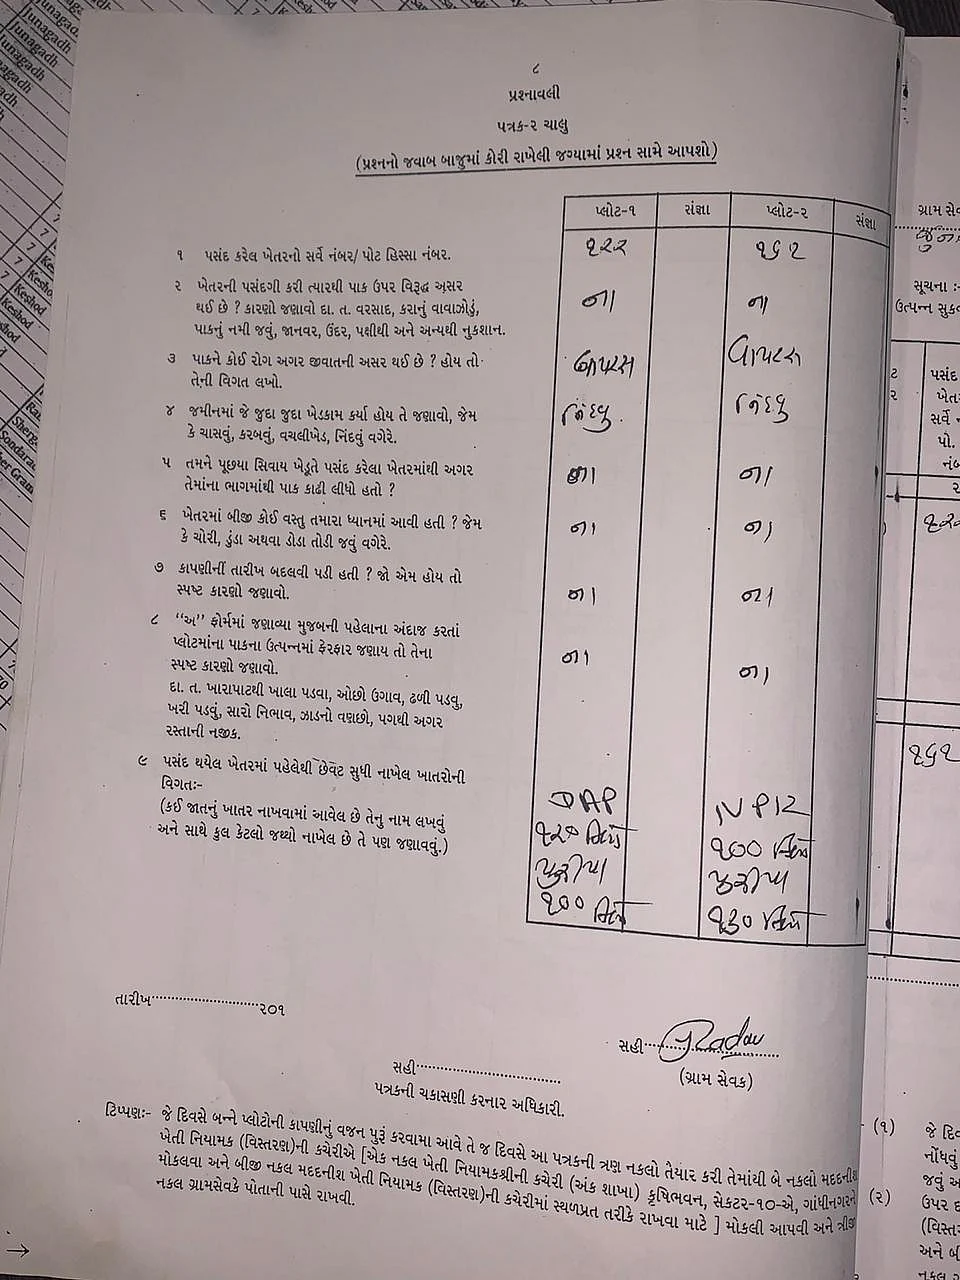 ૮
પ્રશ્નાવલી
પત્રક-૨ ચાલુ
(પ્રશ્નનો જવાબ બાજુમાં કોરી રાખેલી જગ્યામાં પ્રશ્ન સામે આપશો)
પ્લોટ-૧ સંજ્ઞા પ્લોટ-૨ સંજ્ઞા
૧ પસંદ કરેલ ખેતરનો સર્વે નંબર/ પોટ હિસ્સા નંબર. ૧૨૨ ૧૬૧
૨ ખેતરની પસંદગી કરી ત્યારથી પાક ઉપર વિરૂદ્ધ અસર
થઈ છે ? કારણો જણાવો દા. ત. વરસાદ, કરાનું વાવાઝોડું, ના ના
પાકનું નમી જવું, જાનવર, ઉંદર, પક્ષીથી અને અન્યથી નુકશાન.
૩ પાકને કોઈ રોગ અગર જીવાતની અસર થઈ છે ? હોય તો વાયરસ વાયરસ
તેની વિગત લખો.
૪ જમીનમાં જે જુદા જુદા ખેડકામ કર્યા હોય તે જણાવો, જેમ નિંદવુ નિંદવુ
કે ચાસવું, કરબવું, વચલીખેડ, નિંદવું વગેરે.
૫ તમને પૂછયા સિવાય ખેડૂતે પસંદ કરેલા ખેતરમાંથી અગર ના ના
તેમાંના ભાગમાંથી પાક કાઢી લીધો હતો ?
૬ ખેતરમાં બીજી કોઈ વસ્તુ તમારા ધ્યાનમાં આવી હતી ? જેમ ના ના
કે ચોરી, ડુંડા અથવા ડોડા તોડી જવું વગેરે.
૭ કાપણીની તારીખ બદલવી પડી હતી ? જો એમ હોય તો ના ના
સ્પષ્ટ કારણો જણાવો.
૮ “અ” ફોર્મમાં જણાવ્યા મુજબની પહેલાના અંદાજ કરતાં
પ્લોટમાંના પાકના ઉત્પન્નમાં ફેરફાર જણાય તો તેના ના ના
સ્પષ્ટ કારણો જણાવો.
દા. ત. ખારાપાટથી ખાલા પડવા, ઓછો ઉગાવ, ઢળી પડવુ,
ખરી પડવું, સારો નિભાવ, ઝાડનો વણછો, પગથી અગર
રસ્તાની નજીક.
૯ પસંદ થયેલ ખેતરમાં પહેલેથી છેવટ સુધી નાખેલ ખાતરોની
વિગતઃ- DAP
(કઈ જાતનું ખાતર નાખવામાં આવેલ છે તેનુ નામ લખવું ૧૨૦ કિગ્રા ૧૦૦ કિગ્રા
અને સાથે કુલ કેટલો જથ્થો નાખેલ છે તે પણ જણાવવું.) યુરીયા યુરીયા
૧૦૦ કિગ્રા ૧૩૦ કિગ્રા
તારીખ ૨૦૧
સહી
(ગ્રામ સેવક)
સહી
પત્રકની ચકાસણી કરનાર અધિકારી.
ટિપ્પણઃ- જે દિવસે બન્ને પ્લોટોની કાપણીનું વજન પુરૂં કરવામા આવે તે જ દિવસે આ પત્રકની ત્રણ નકલો તૈયાર કરી તેમાંથી બે નકલો મદદનીશ
ખેતી નિયામક (વિસ્તરણ)ની કચેરીએ [એક નકલ ખેતી નિયામકશ્રીની કચેરી (અંક શાખા) કૃષિભવન, સેકટર-૧૦-એ, ગાંધીનગરને
મોકલવા અને બીજી નકલ મદદનીશ ખેતી નિયામક (વિસ્તરણ)ની કચેરીમાં સ્થળપ્રત તરીકે રાખવા માટે ] મોકલી આપવી અને ત્રીજી
નકલ ગ્રામસેવકે પોતાની પાસે રાખવી.
ગ્રામ સેવ
સૂચના :-
ઉત્પન્ન સુક
પસંદ
ખેત
સર્વે ન
પો.
નંબ
૧૬૧
(૧) જે દિ
નોંધવું
જવું અ
(૨) ઉપર દ
(વિસ્તર
અને બી
નકલ ગ્ર
Junagadh
Junagadh
Junagadh
Keshod
Keshod